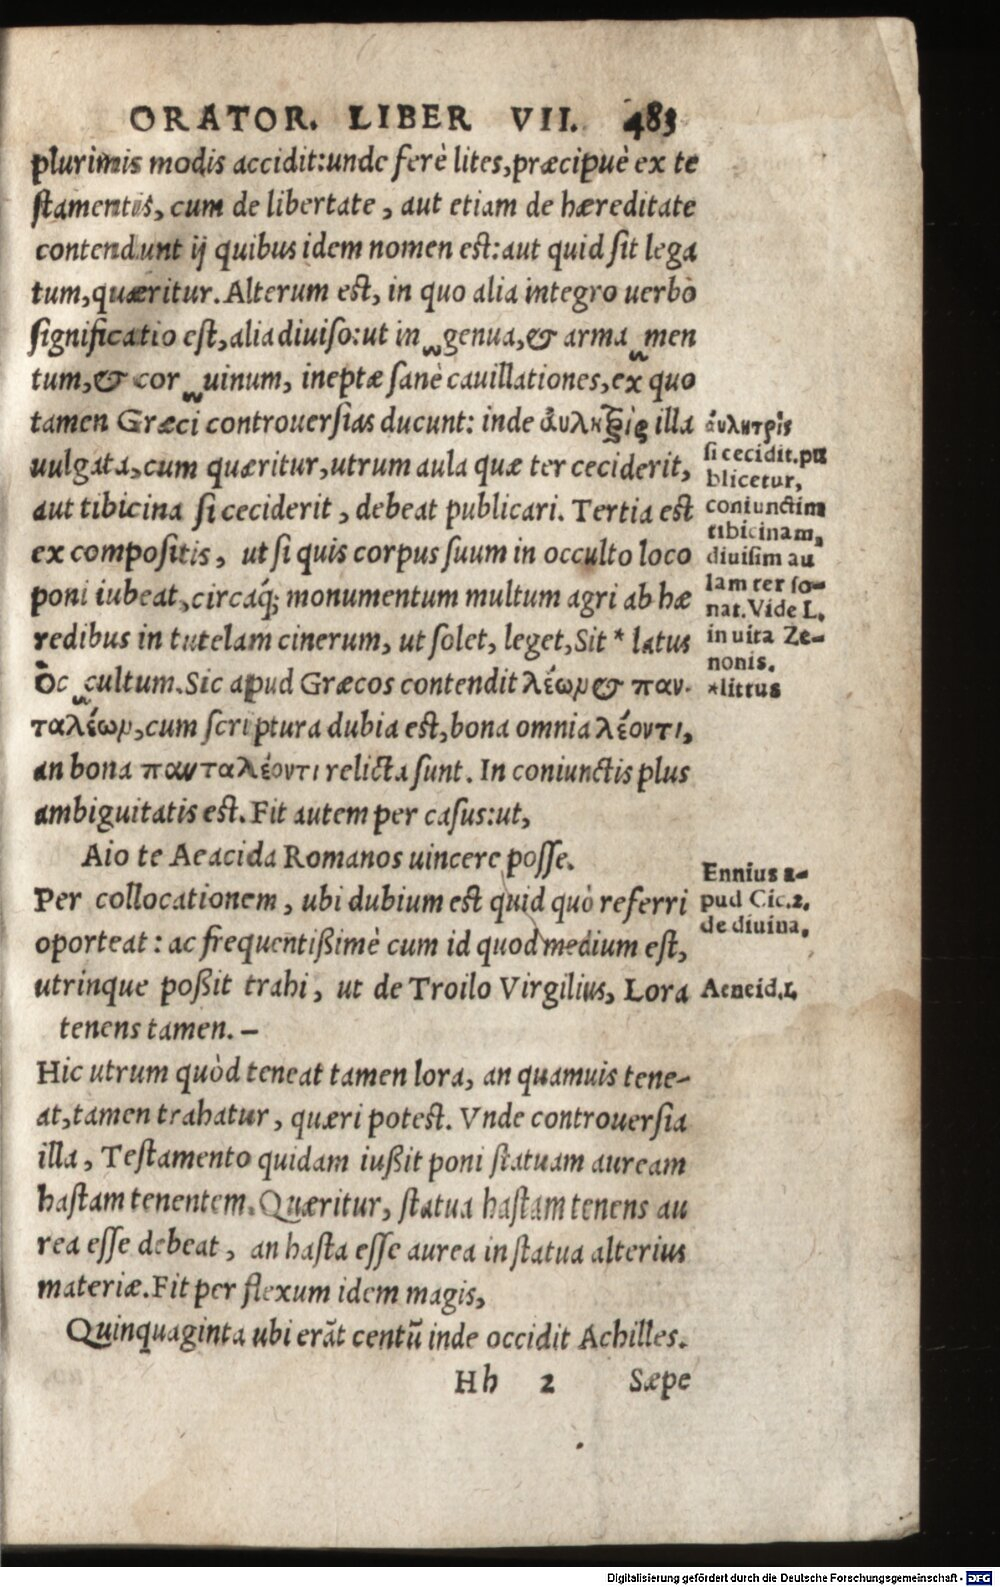 ORATOR. LIBER VII. 483
plurimis modis accidit:unde ferè lites,præcipuè ex te
stamentis, cum de libertate, aut etiam de hæreditate
contendunt ij quibus idem nomen est:aut quid sit lega
tum,quæritur.Alterum est, in quo alia integro uerbo
significatio est,alia diuiso:ut in‿genua,& arma‿men
tum,& cor‿uinum, ineptæ sanè cauillationes, ex quo
tamen Græci controuersias ducunt: inde ἀυλητρὶς illa
uulgata,cum quæritur,utrum aula quæ ter ceciderit,
aut tibicina si ceciderit, debeat publicari. Tertia est
ex compositis, ut si quis corpus suum in occulto loco
poni iubeat,circaq́; monumentum multum agri ab hæ
redibus in tutelam cinerum, ut solet, leget,Sit * latus
Oc‿cultum.Sic apud Græcos contendit λέων & παν-
ταλέων,cum scriptura dubia est,bona omnia λέοντι,
an bona πανταλέοντι relicta sunt. In coniunctis plus
ambiguitatis est.Fit autem per casus:ut,
Aio te Aeacida Romanos uincere posse.
Per collocationem, ubi dubium est quid quò referri
oporteat: ac frequentißimè cum id quod medium est,
utrinque poßit trahi, ut de Troilo Virgilius, Lora
tenens tamen.—
Hic utrum quòd teneat tamen lora, an quamuis tene-
at,tamen trahatur, quæri potest. Vnde controuersia
illa, Testamento quidam iußit poni statuam auream
hastam tenentem.Quæritur, statua hastam tenens au
rea esse debeat, an hasta esse aurea in statua alterius
materiæ.Fit per flexum idem magis,
Quinquaginta ubi erãt centũ inde occidit Achilles.
Hh 2 Sæpe
ἀυλητρὶς
si cecidit.pu
blicetur,
coniunctim
tibicinam,
diuisim au
lam ter so-
nat.Vide L.
in uita Ze-
nonis.
*littus
Ennius a-
pud Cic.2.
de diuina.
Aeneid.1.
Digitalisierung gefördert durch die Deutsche Forschungsgemeinschaft - DFG